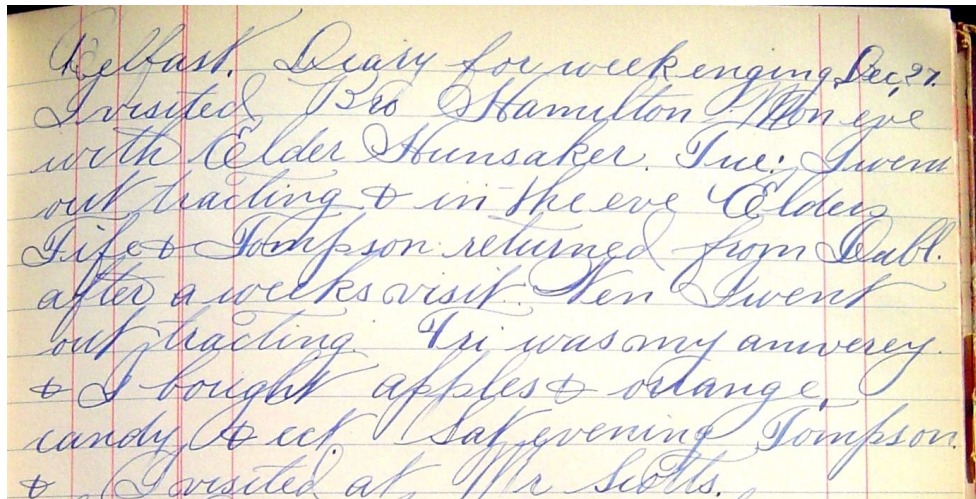 Belfast. Diary for week enging Dec, 27.
I visited Bro Hamilton Mon eve
with Elder Hunsaker. Tue: I went
out tracting & in the eve Elders
Fife & Tompson returned from Dubl.
after a weeks visit. Wen I went
out tracting. Fri was my anverey.
& I bought apples & orange,
candy, & ect. Sat evening Tompson
& I visited at Mr Scotts.